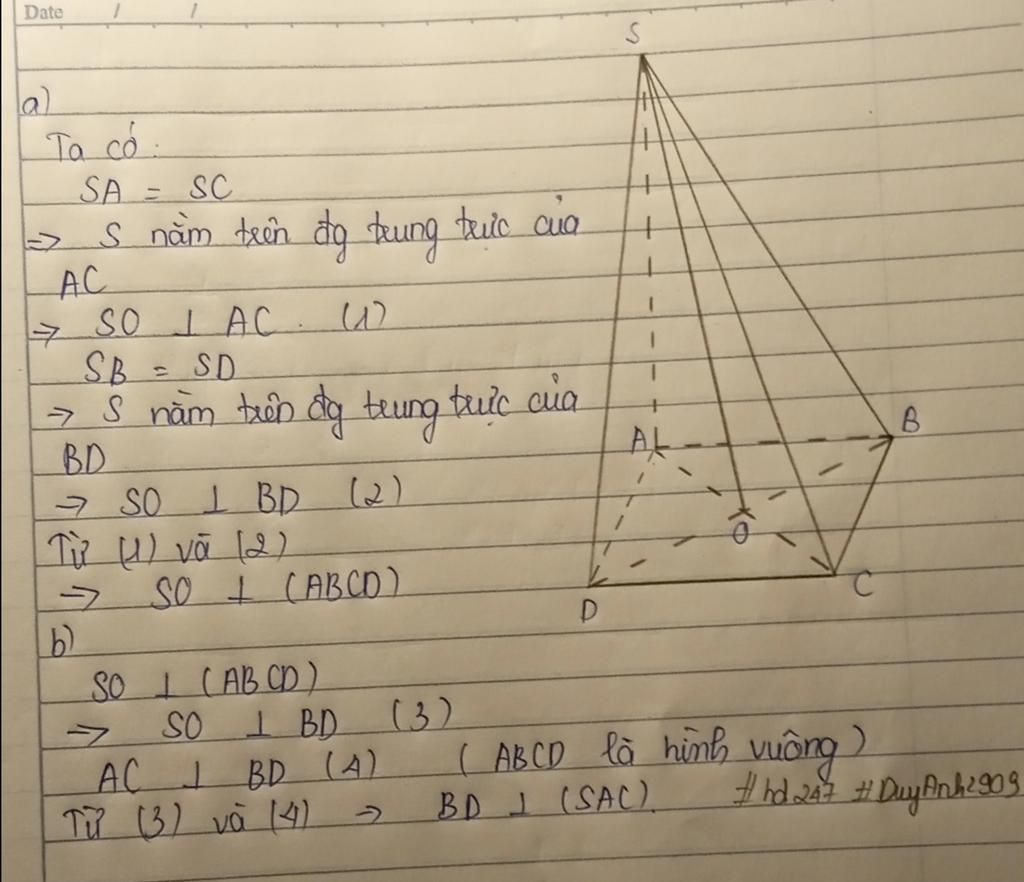 Date / /
S
a)
Ta có:
SA = SC
=> S nằm trên đg trung trực của
AC
=> SO ⊥ AC. (1)
SB = SD
=> S nằm trên đg trung trực của
BD
=> SO ⊥ BD (2)
Từ (1) và (2)
=> SO ⊥ (ABCD)
A
B
O
C
D
b)
SO ⊥ (ABCD)
=> SO ⊥ BD (3)
AC ⊥ BD (4) (ABCD là hình vuông)
Từ (3) và (4) => BD ⊥ (SAC). #hd247 #DuyAnh2909